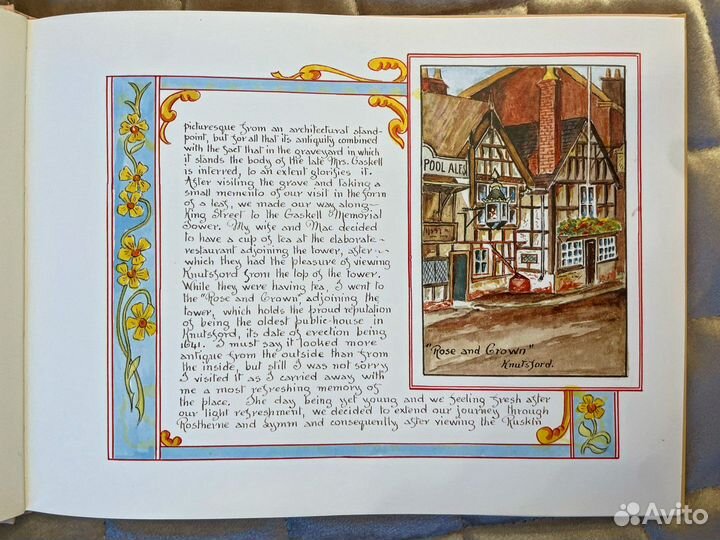 picturesque from an architectural stand-
point, but for all that its antiquity combined
with the fact that in the graveyard in which
it stands the body of the late Mrs. Gaskell
is inferred, to an extent glorifies it.
After visiting the grave and taking a
small memento of our visit in the form
of a leaf, we made our way along-
King Street to the Gaskell Memorial
Tower. My wife and Mac decided
to have a cup of tea at the elaborate-
restaurant adjoining the tower, after-
which they had the pleasure of viewing
Knutsford from the top of the tower.
While they were having tea, I went to
the "Rose and Crown" adjoining the
tower, which holds the proud reputation
of being the oldest public-house in
Knutsford, its date of erection being
1641. I must say it looked more
antique from the outside than from
the inside, but still I was not sorry
I visited it as I carried away with
me a most refreshing memory of
the place. The day being yet young and we feeling fresh after
our light refreshment, we decided to extend our journey through
Rostherne and Lymm and consequently after viewing the Ruskin
POOL ALES
"Rose and Crown"
Knutsford.
Avito